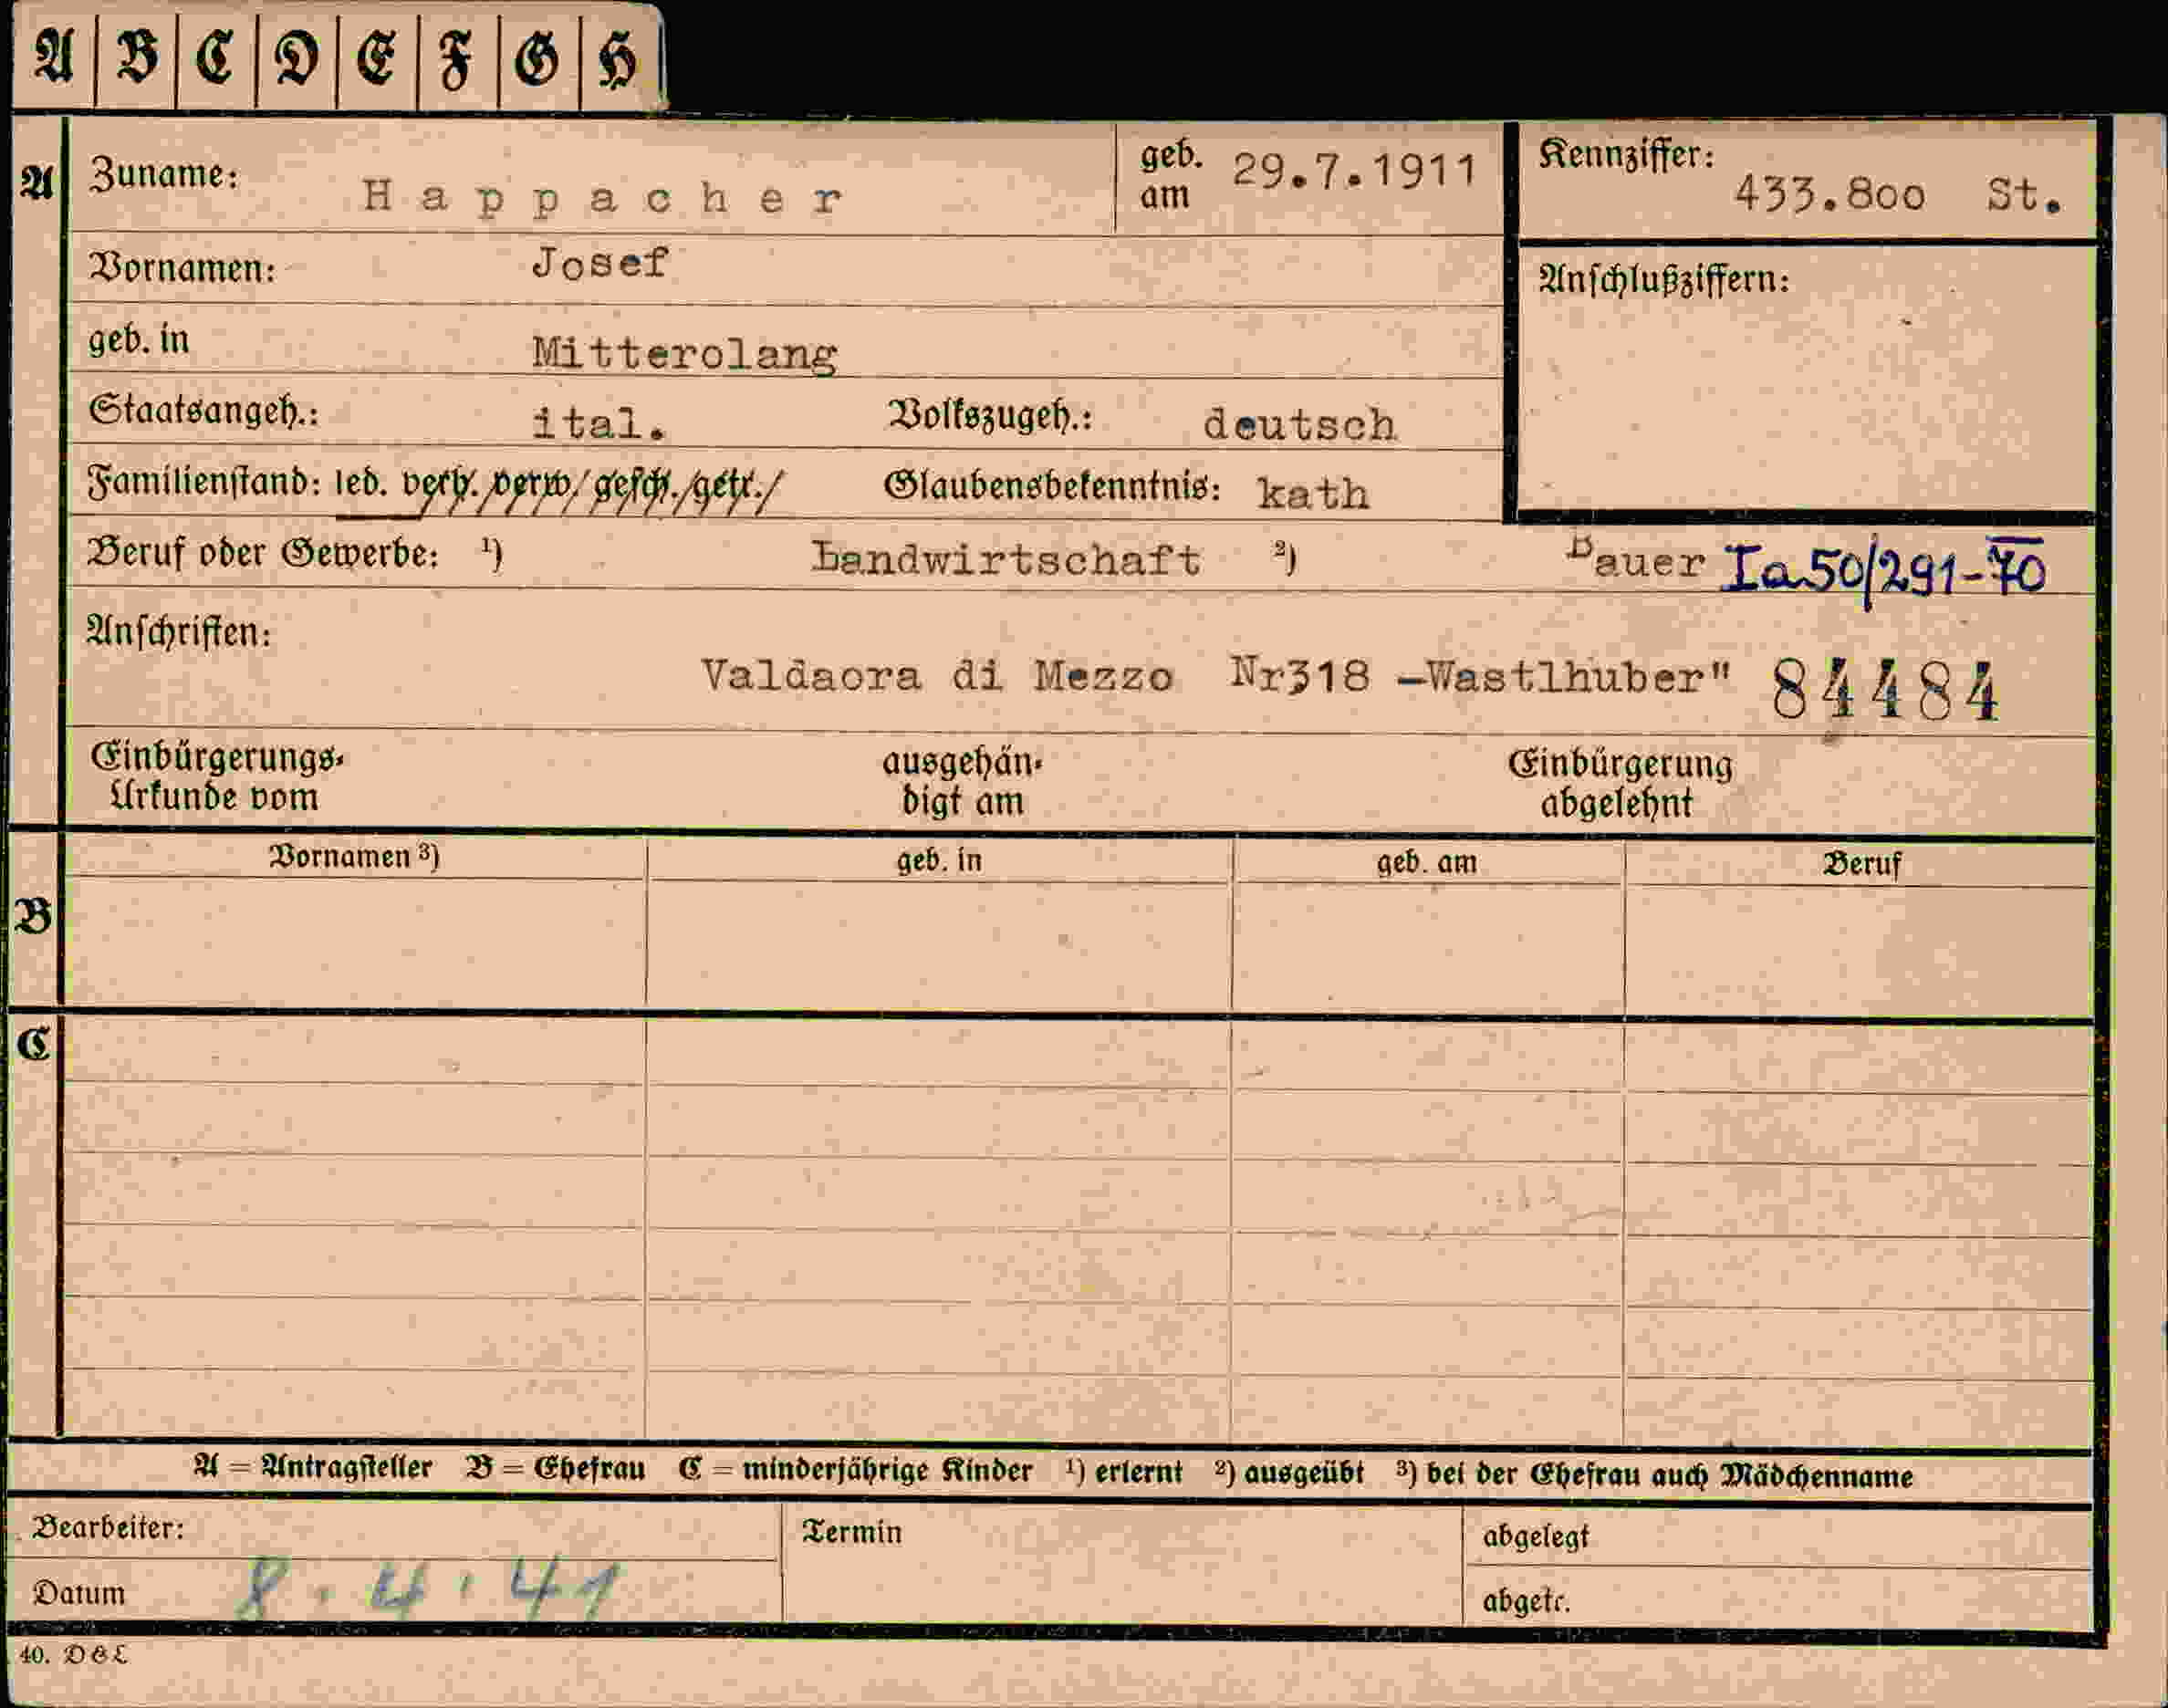 A B C D E F G H
A Zuname: Happacher geb. am 29.7.1911 Kennziffer: 433.800 St.
Vornamen: Josef Anschlußziffern:
geb. in Mitterolang
Staatsangeh.: ital. Volkszugeh.: deutsch
Familienstand: led. verh. verw/ gesch./getr./ Glaubensbekenntnis: kath
Beruf oder Gewerbe: ¹) Landwirtschaft ²) Bauer Ia50/291-70
Anschriften:
Valdaora di Mezzo Nr318 –Wastlhuber" 84484
Einbürgerungs- ausgehän- Einbürgerung
Urkunde vom digt am abgelehnt
Vornamen ³) geb. in geb. am Beruf
B
C
A = Antragsteller B = Ehefrau C = minderjährige Kinder ¹) erlernt ²) ausgeübt ³) bei der Ehefrau auch Mädchenname
Bearbeiter: Termin abgelegt
Datum 8.4.41 abgetr.
40.